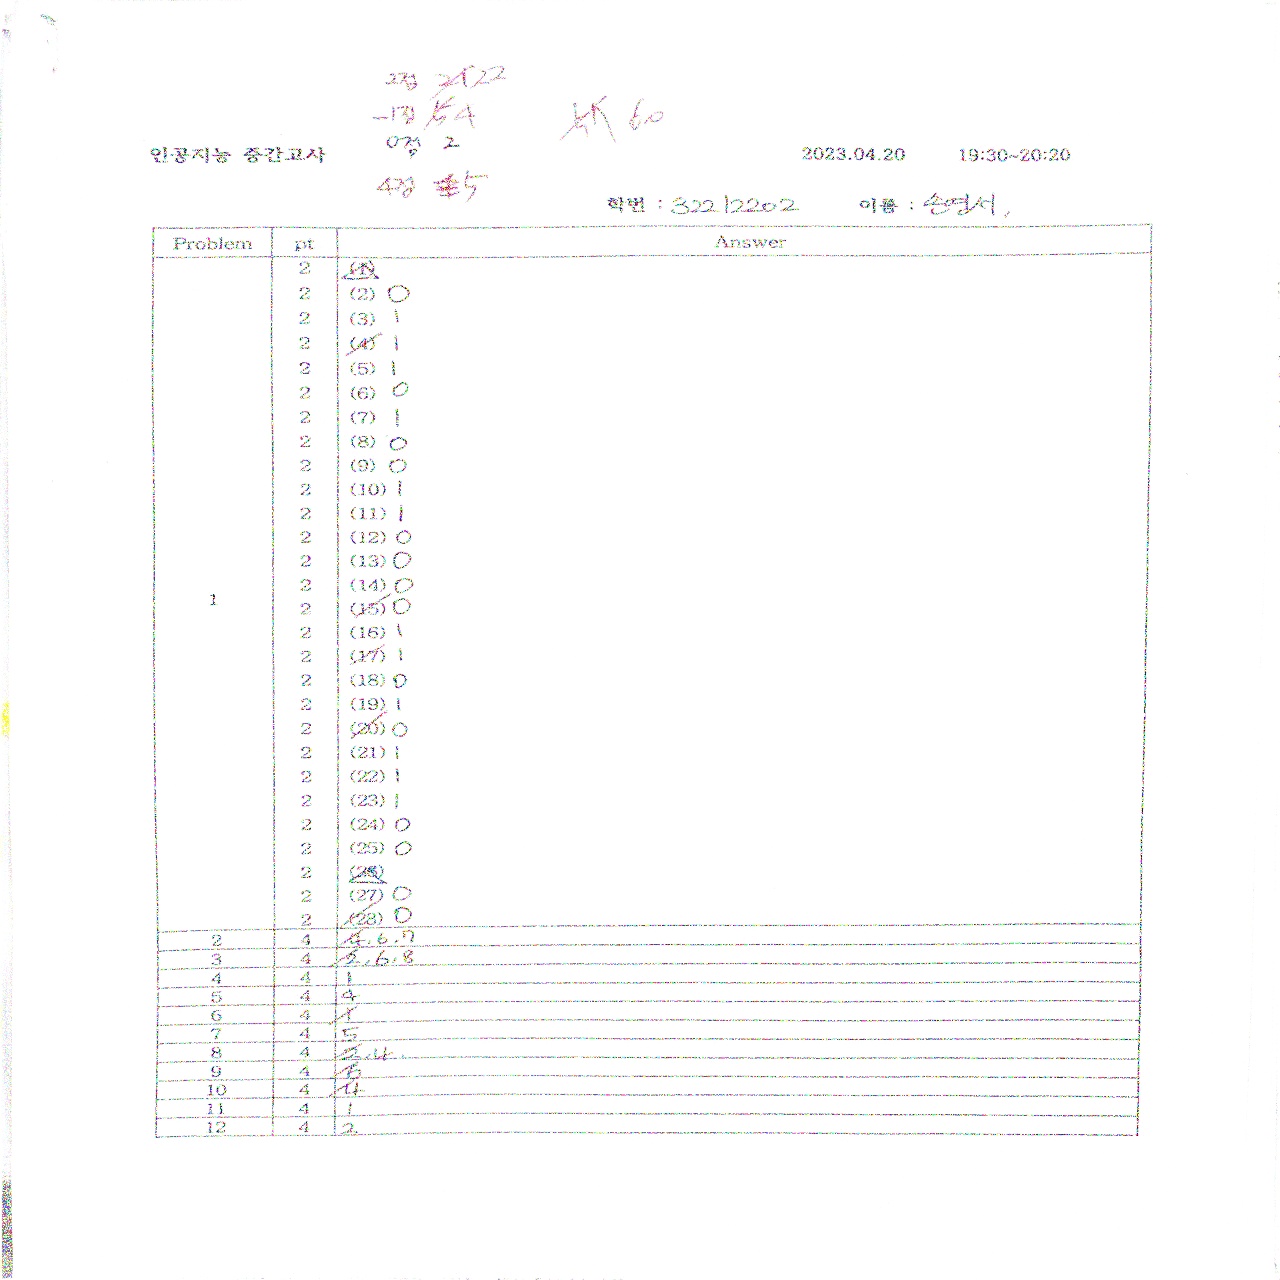 2점 22
-1점 4
60
0점 2
인공지능 중간고사 2023.04.20 19:30~20:20
4점 5
학번 : 32212202 이름 : 손영서
Problem pt Answer
1
2 (1)
2 (2) 0
2 (3) 1
2 (4) 1
2 (5) 1
2 (6) 0
2 (7) 1
2 (8) 0
2 (9) 0
2 (10) 1
2 (11) 1
2 (12) 0
2 (13) 0
2 (14) 0
2 (15) 0
2 (16) 1
2 (17) 1
2 (18) 0
2 (19) 1
2 (20) 0
2 (21) 1
2 (22) 1
2 (23) 1
2 (24) 0
2 (25) 0
2 (26)
2 (27) 0
2 (28) 0
2 4 4.6.7
3 4 2.6.8
4 4 1
5 4 4
6 4 1
7 4 5
8 4 2.4.
9 4 5
10 4 4
11 4 1
12 4 2